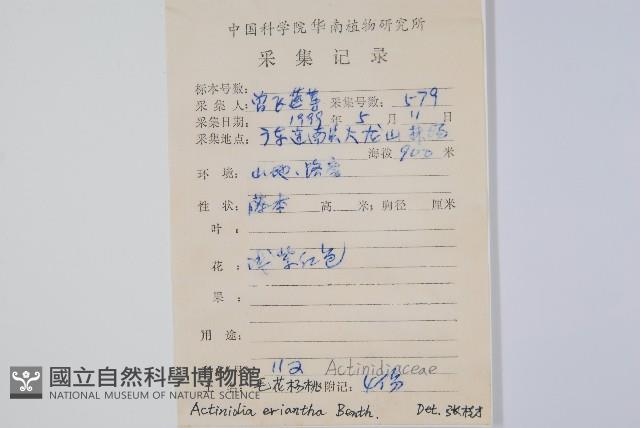 中国科学院华南植物研究所
采集记录
标本号数:
采集人: 曾飞燕等 采集号数: 579
采集日期: 1999 年 5 月 11 日
采集地点: 广东连南大龙山林场
海拔 900 米
环境: 山地、路旁
性状: 藤本 高 米; 胸径 厘米
叶:
花: 浅紫红色
果:
用途:
112 Actinidiaceae
毛花杨桃 附记: 4份
國立自然科學博物館
NATIONAL MUSEUM OF NATURAL SCIENCE
Actinidia eriantha Benth. Det.